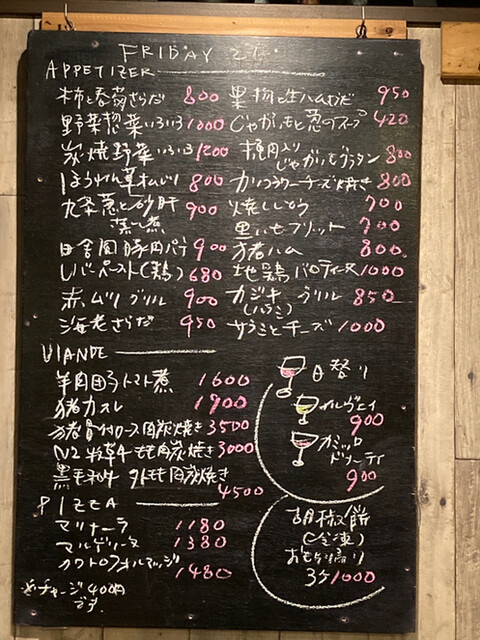 FRIDAY 21.
APPETIZER
柿と春菊さらだ 800
野菜惣菜いろいろ 1000
炭焼野菜いろいろ 1200
ほうれん草 800
九条葱と砂肝 900
蒸し煮
田舎風豚肉パテ 900
レバーペースト(鶏) 680
赤 グリル 900
海老さらだ 950
果物と生ハムさらだ 950
じゃがいもと葱のスープ 420
挽肉入り
じゃがいもグラタン 800
カリフラワーチーズ焼き 800
焼ししとう 700
里いもフリット 700
猪ハム 800.
地鶏バロティーヌ 1000
カジキ グリル 850
(ハラミ)
サラミとチーズ 1000
VIANDE
羊肉団子トマト煮 1600
猪カスレ 1900
猪骨付ロース肉炭焼き 3500
NZ牧草牛もも肉炭焼き 3000
黒毛和牛 外もも肉炭焼き
4500
PIZZA
マリナーラ 1180
マルゲリータ 1380
クワトロフォルマッジ
1480
チャージ400円
です.
日替り
900
カミッロ
ドナーティ
900
胡椒餅
(冷凍)
お持ち帰り
3ケ1000